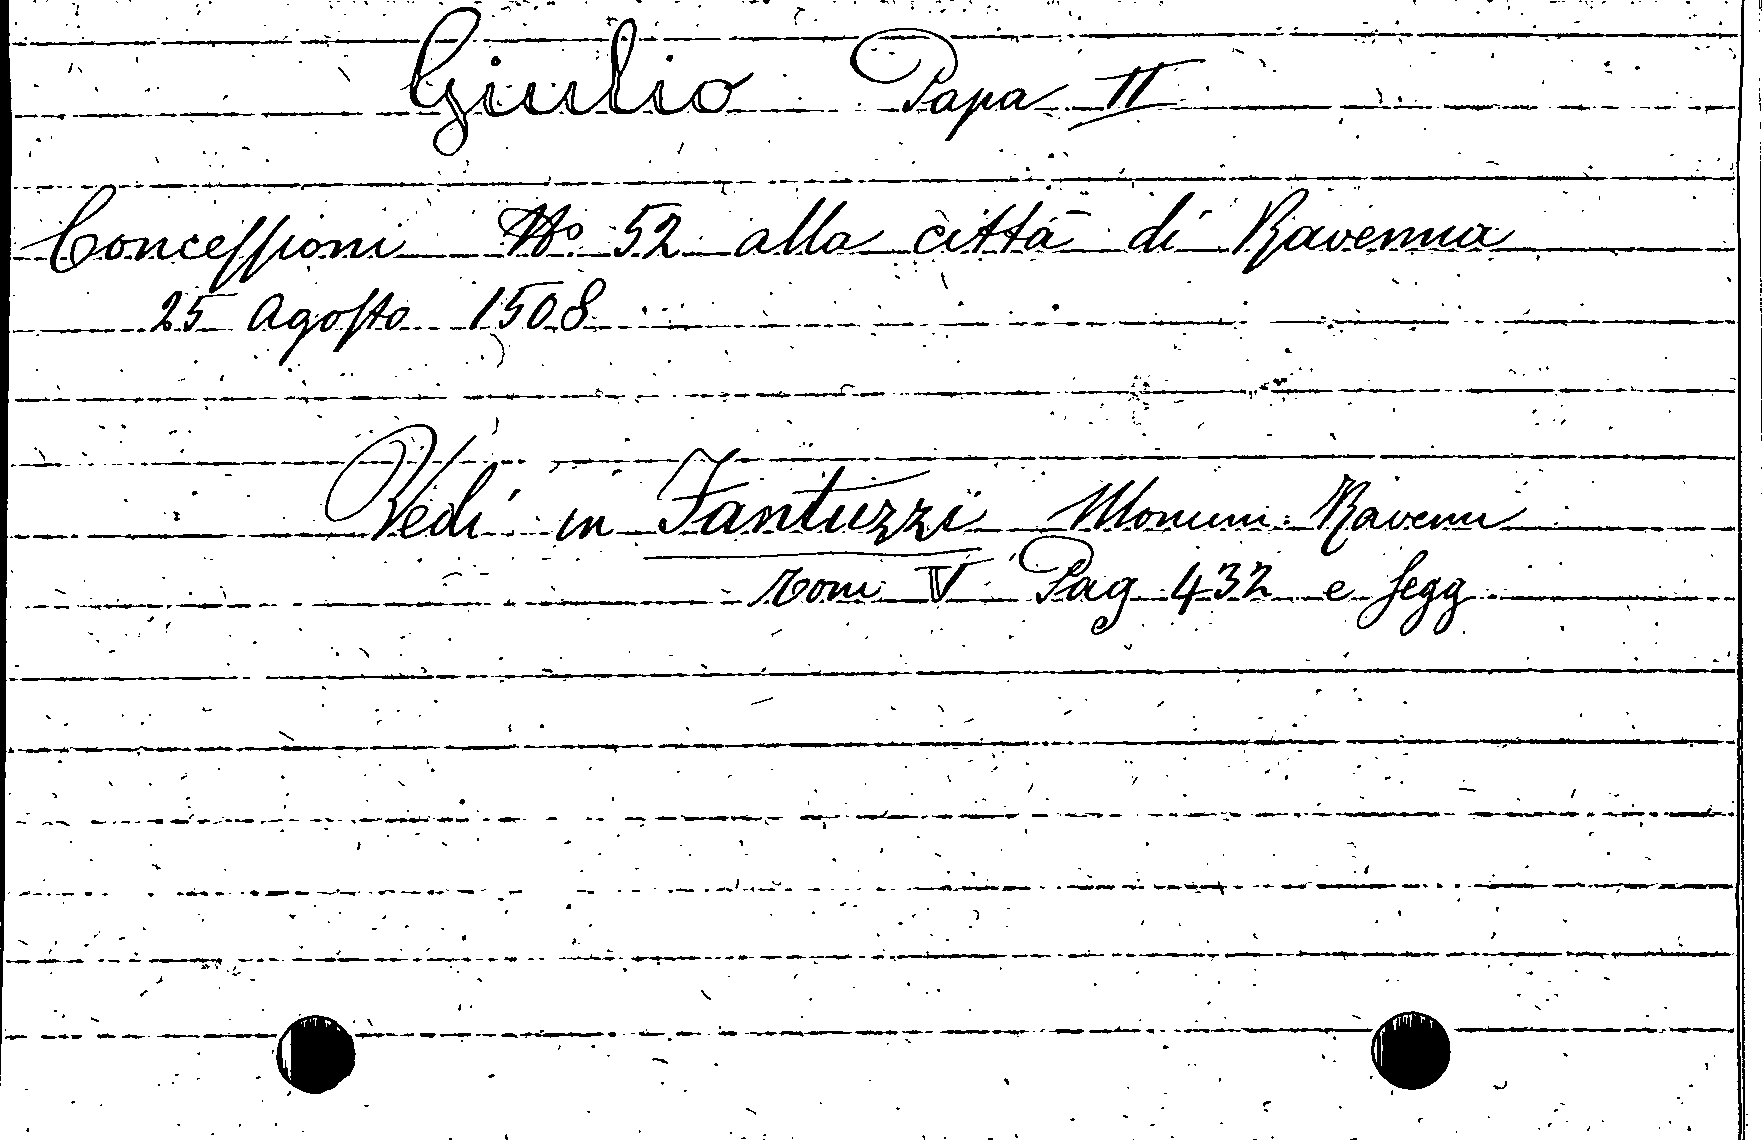 Giulio Papa II
Concessioni No 52 alla città di Ravenna
25 Agosto 1508
Vedi in Fantuzzi Monum. Ravenn
Tom V Pag 432 e segg